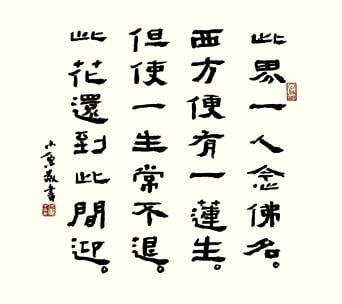 此界一人念佛名。
西方便有一蓮生。
但使一生常不退。
此花還到此間迎。
小魚敬書